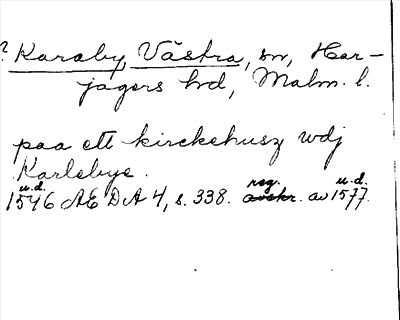 ? Karaby, Västra, sn, Har-
jagers hrd, Malm. l.
paa ett kirckehusz wdj
Karlebye.
u.d. reg. u.d.
1546 ÆDA 4, s. 338. avskr. av 1577.